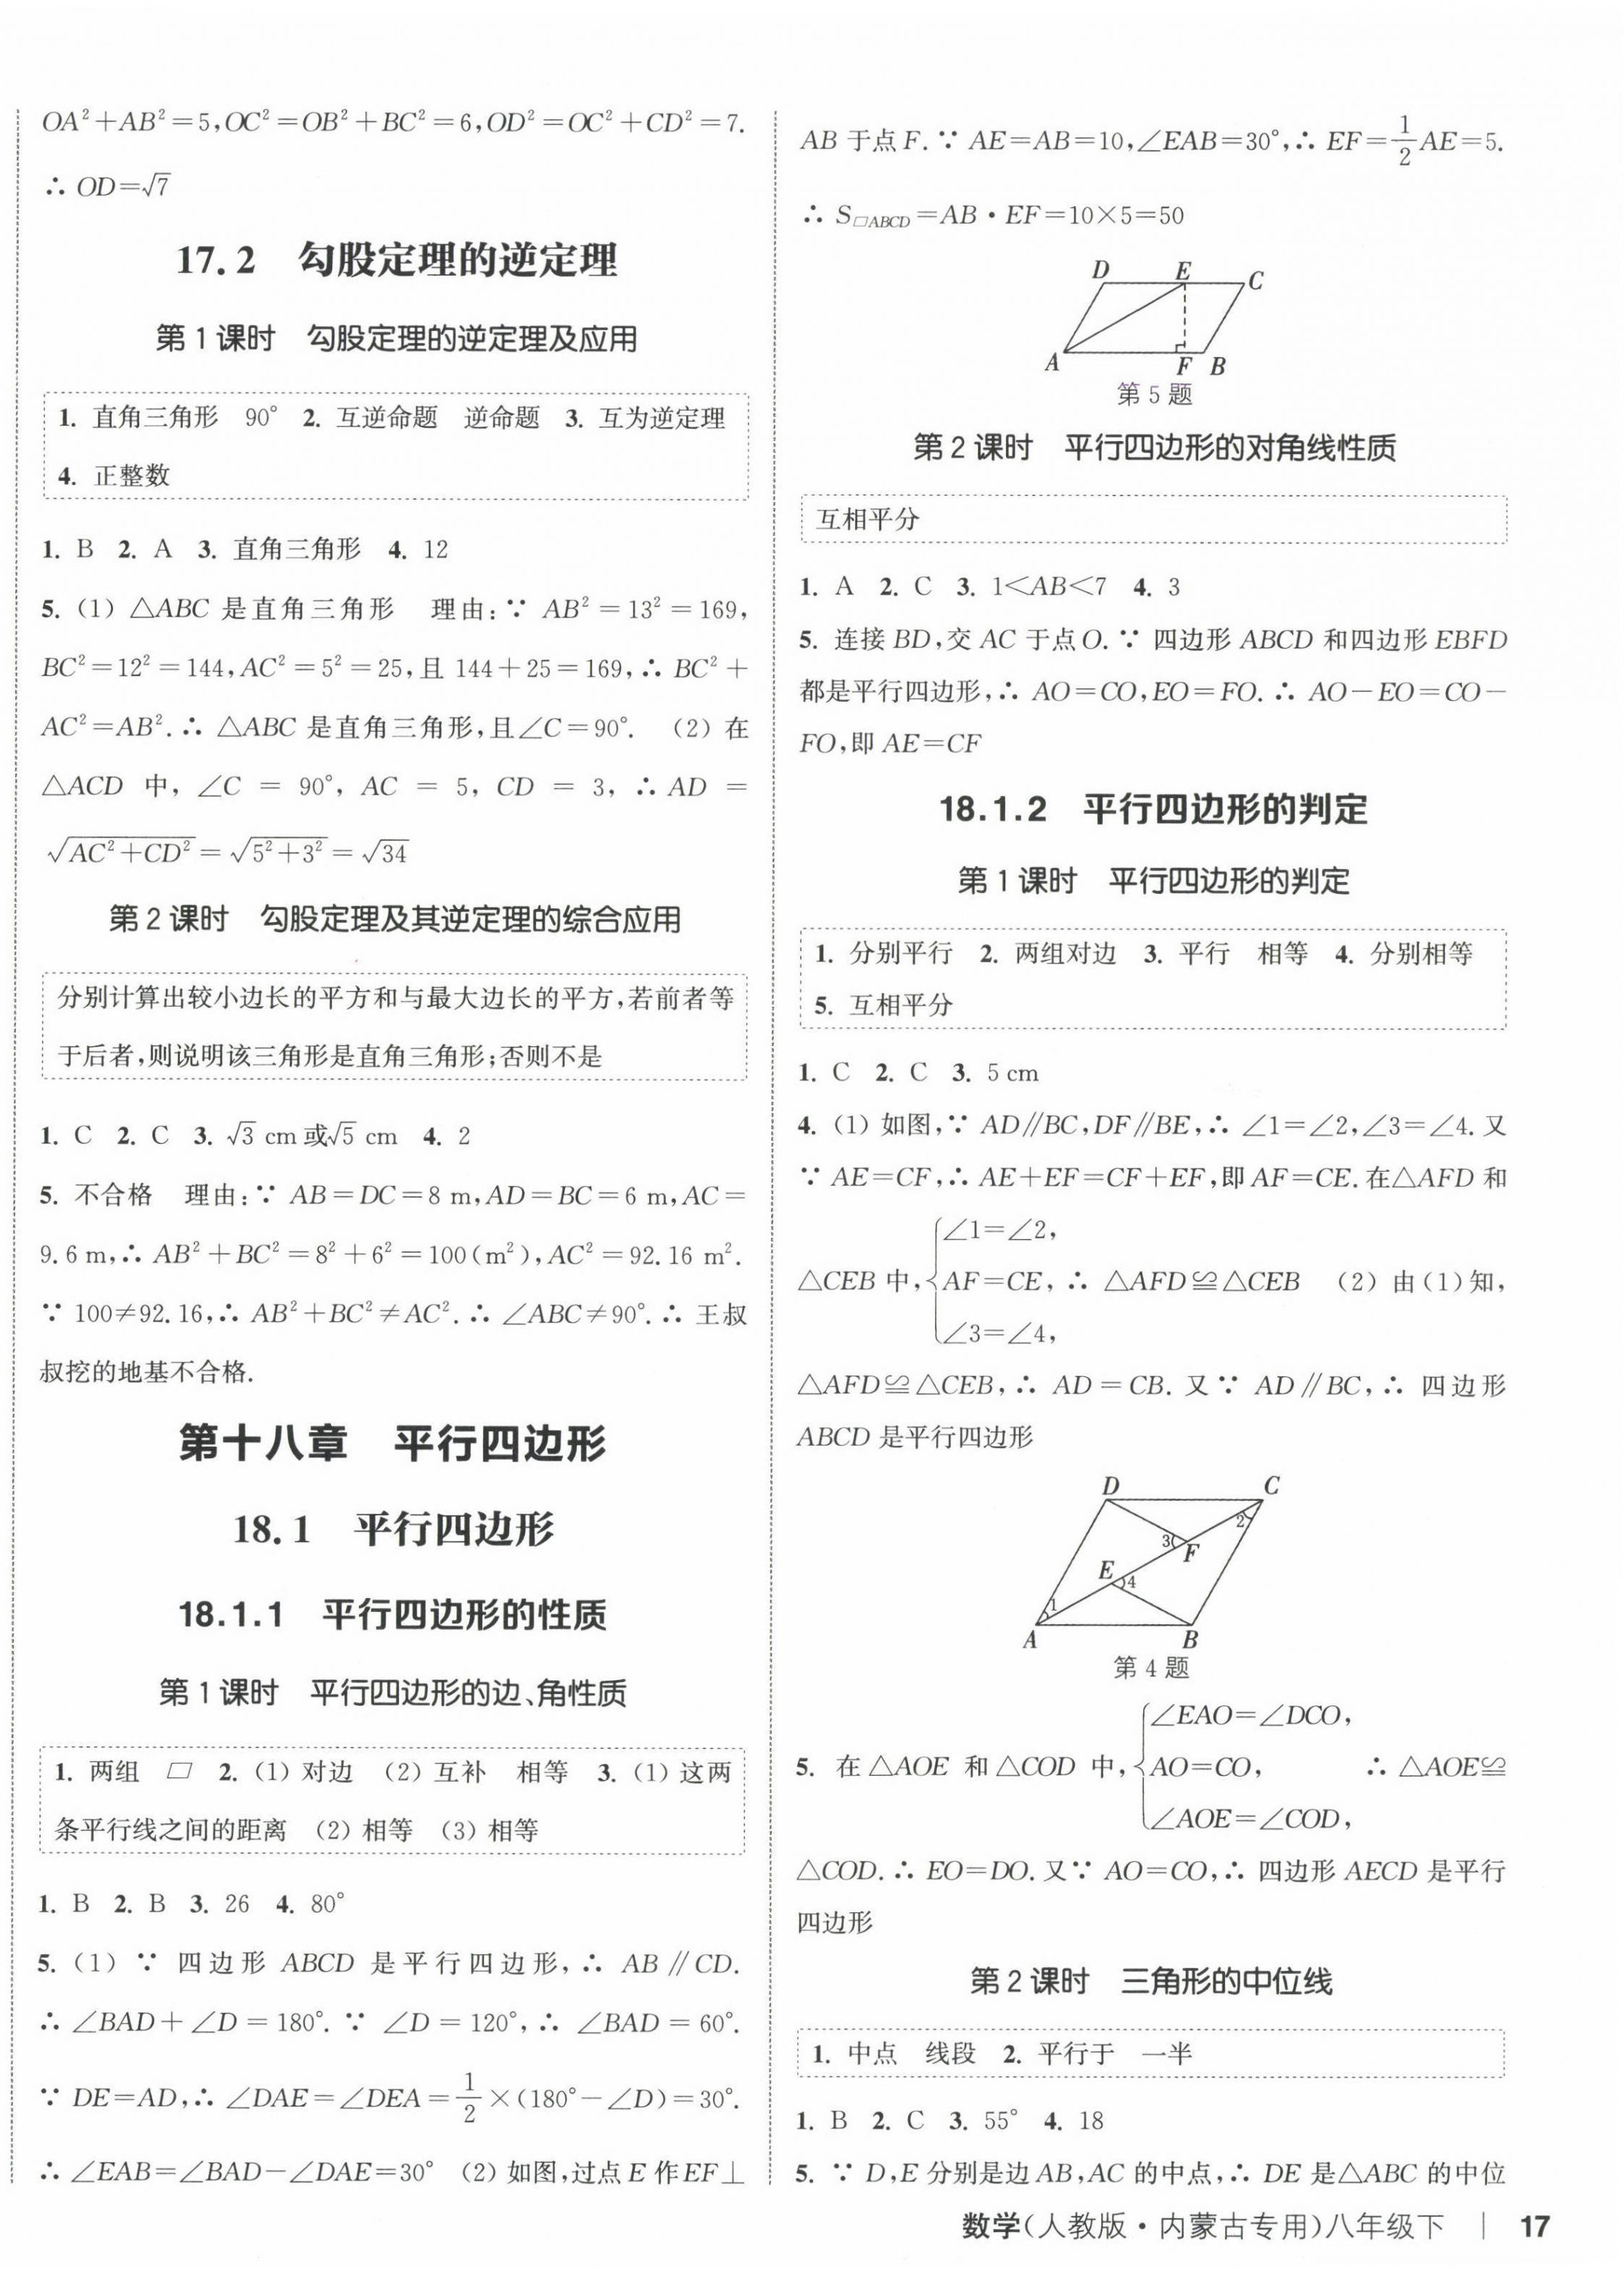 OA²+AB²=5,OC²=OB²+BC²=6,OD²=OC²+CD²=7.
∴ OD=√7
17.2　勾股定理的逆定理
第1课时　勾股定理的逆定理及应用
1. 直角三角形　90°　2. 互逆命题　逆命题　3. 互为逆定理
4. 正整数
1. B　2. A　3. 直角三角形　4. 12
5. (1) △ABC 是直角三角形　理由:∵ AB²=13²=169,
BC²=12²=144,AC²=5²=25,且 144+25=169,∴ BC²+
AC²=AB².∴ △ABC 是直角三角形,且∠C=90°.　(2) 在
△ACD 中, ∠C = 90°, AC = 5, CD = 3, ∴ AD =
√(AC²+CD²)=√(5²+3²)=√34
第2课时　勾股定理及其逆定理的综合应用
分别计算出较小边长的平方和与最大边长的平方,若前者等
于后者,则说明该三角形是直角三角形;否则不是
1. C　2. C　3. √3 cm或√5 cm　4. 2
5. 不合格　理由:∵ AB=DC=8 m,AD=BC=6 m,AC=
9.6 m,∴ AB²+BC²=8²+6²=100(m²),AC²=92.16 m².
∵ 100≠92.16,∴ AB²+BC²≠AC².∴ ∠ABC≠90°.∴ 王叔
叔挖的地基不合格.
第十八章　平行四边形
18.1　平行四边形
18.1.1　平行四边形的性质
第1课时　平行四边形的边、角性质
1. 两组　▱　2. (1) 对边　(2) 互补　相等　3. (1) 这两
条平行线之间的距离　(2) 相等　(3) 相等
1. B　2. B　3. 26　4. 80°
5. (1) ∵ 四边形 ABCD 是平行四边形,∴ AB∥CD.
∴ ∠BAD+∠D=180°.∵ ∠D=120°,∴ ∠BAD=60°.
∵ DE=AD,∴ ∠DAE=∠DEA=1/2×(180°−∠D)=30°.
∴ ∠EAB=∠BAD−∠DAE=30°　(2) 如图,过点 E 作EF⊥
AB 于点 F.∵ AE=AB=10,∠EAB=30°,∴ EF=1/2AE=5.
∴ S▱ABCD=AB·EF=10×5=50
D E C
A F B
第5题
第2课时　平行四边形的对角线性质
互相平分
1. A　2. C　3. 1<AB<7　4. 3
5. 连接 BD,交 AC 于点O.∵ 四边形 ABCD 和四边形 EBFD
都是平行四边形,∴ AO=CO,EO=FO.∴ AO−EO=CO−
FO,即 AE=CF
18.1.2　平行四边形的判定
第1课时　平行四边形的判定
1. 分别平行　2. 两组对边　3. 平行　相等　4. 分别相等
5. 互相平分
1. C　2. C　3. 5 cm
4. (1) 如图,∵ AD∥BC,DF∥BE,∴ ∠1=∠2,∠3=∠4.又
∵ AE=CF,∴ AE+EF=CF+EF,即 AF=CE.在△AFD 和
∠1=∠2,
△CEB 中,{AF=CE, ∴ △AFD≌△CEB　(2) 由(1)知,
∠3=∠4,
△AFD≌△CEB,∴ AD=CB.又∵ AD∥BC,∴ 四边形
ABCD 是平行四边形
D C
2
3 F
E 4
1
A B
第4题
∠EAO=∠DCO,
5. 在△AOE 和△COD 中,{AO=CO,　∴ △AOE≌
∠AOE=∠COD,
△COD.∴ EO=DO.又∵ AO=CO,∴ 四边形 AECD 是平行
四边形
第2课时　三角形的中位线
1. 中点　线段　2. 平行于　一半
1. B　2. C　3. 55°　4. 18
5. ∵ D,E 分别是边 AB,AC 的中点,∴ DE 是△ABC 的中位
数学(人教版·内蒙古专用)八年级下　|　17